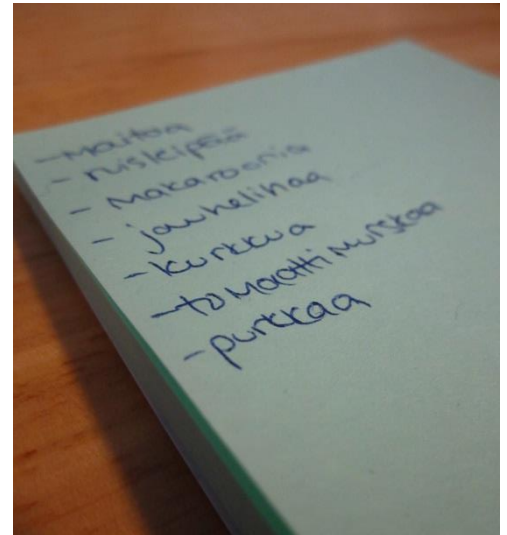 - maitoa
- ruisleipää
- makaroonia
- jauhelihaa
- kurkkua
- tomaattimurskaa
- purkkaa